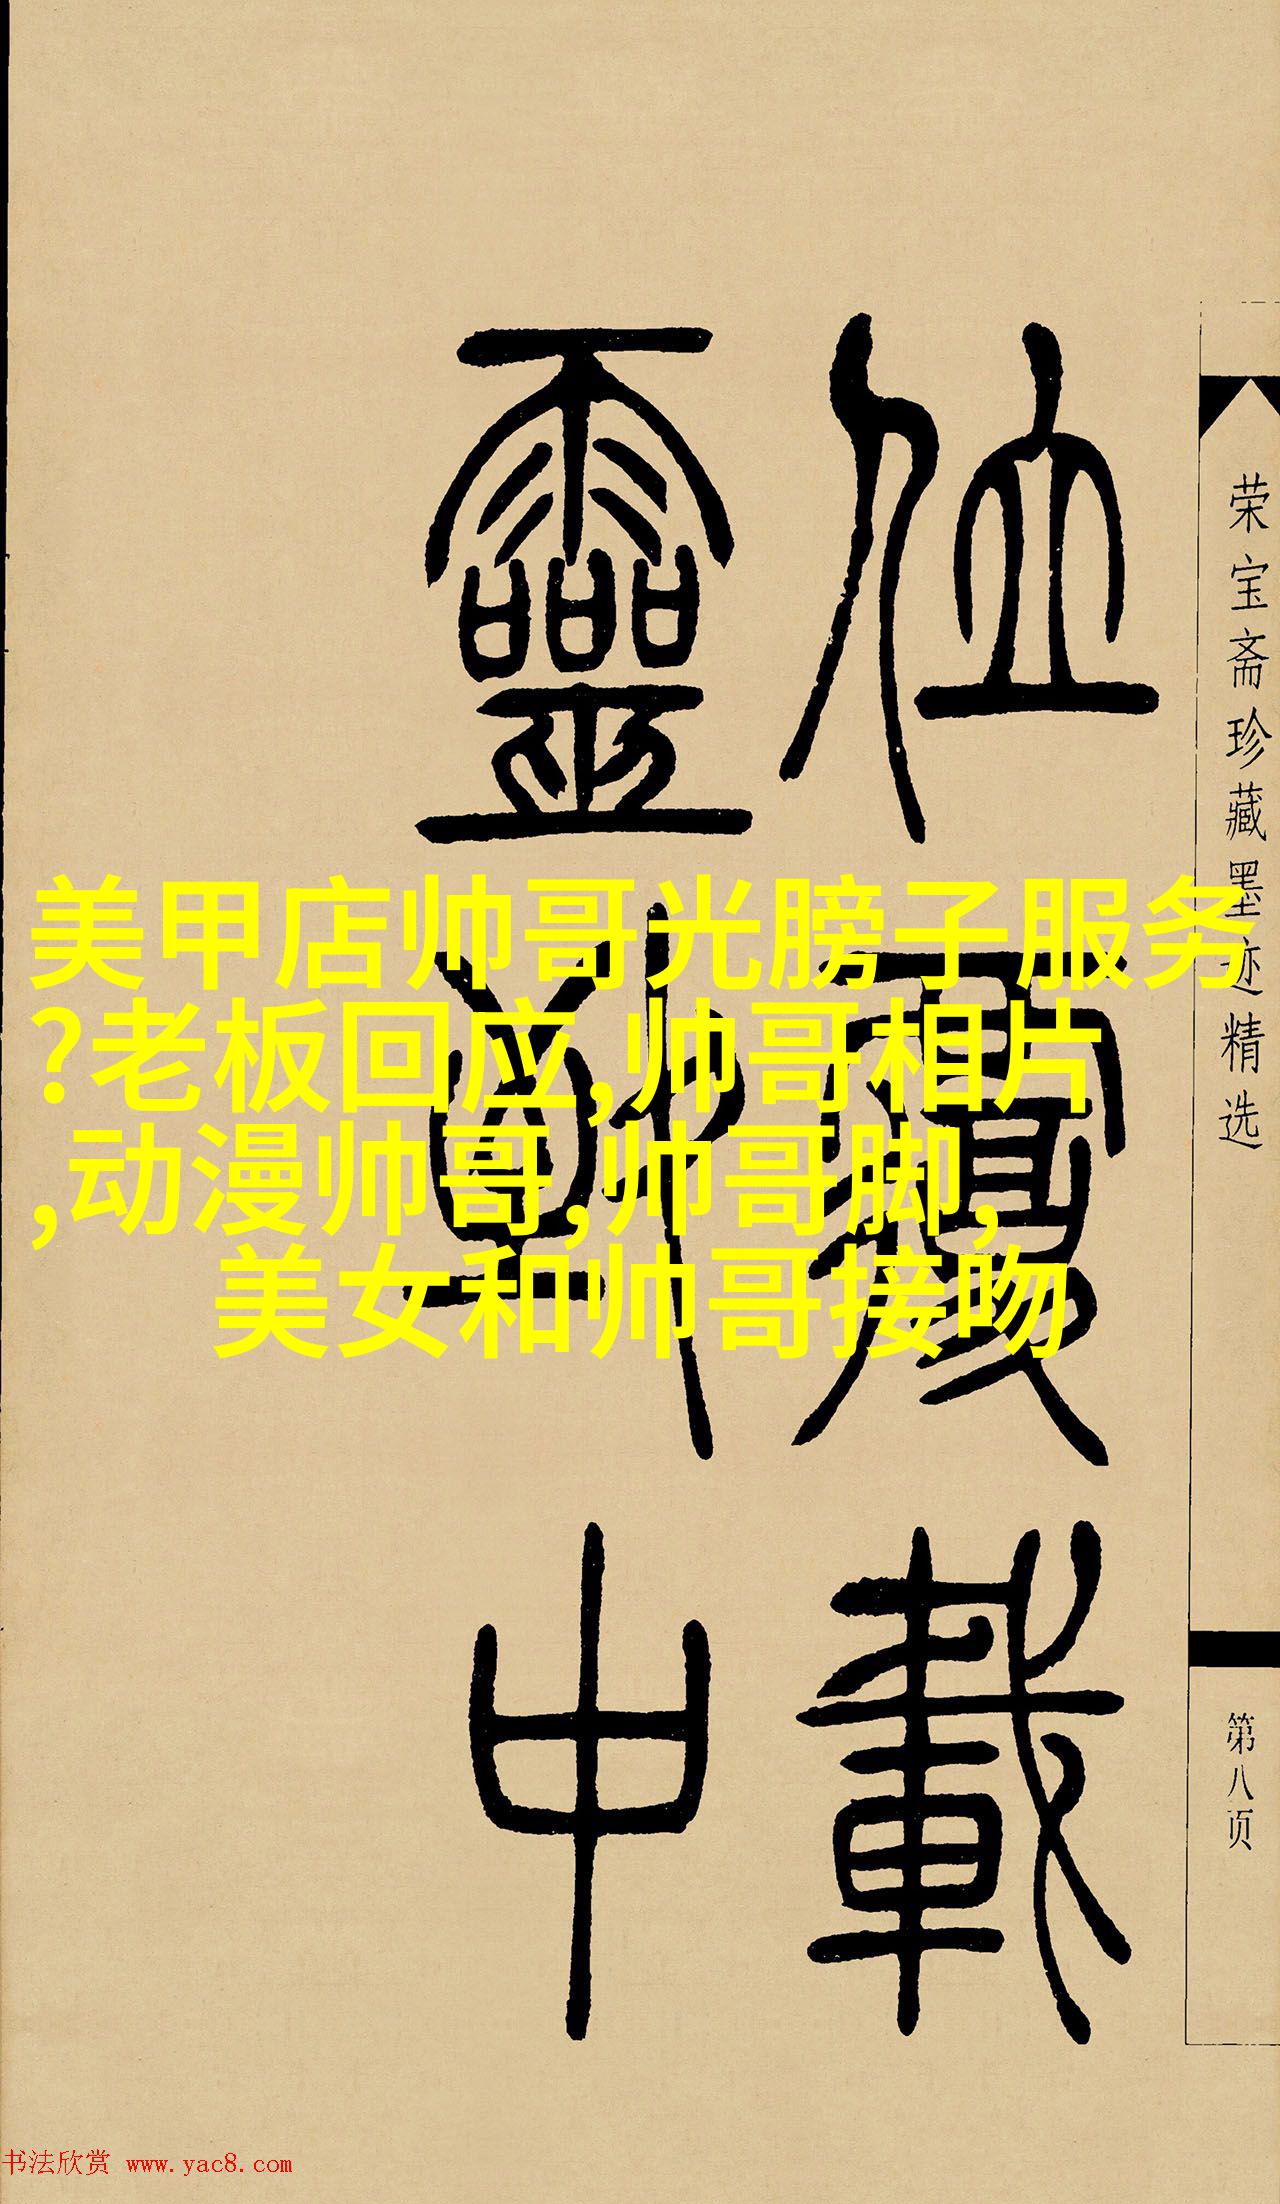 荣宝斋珍藏墨迹精选
第八页
位覆載
靈中
美甲店帅哥光膀子服务
?老板回应,帅哥相片
,动漫帅哥,帅哥脚,
美女和帅哥接吻
书法欣赏 www.yac8.com